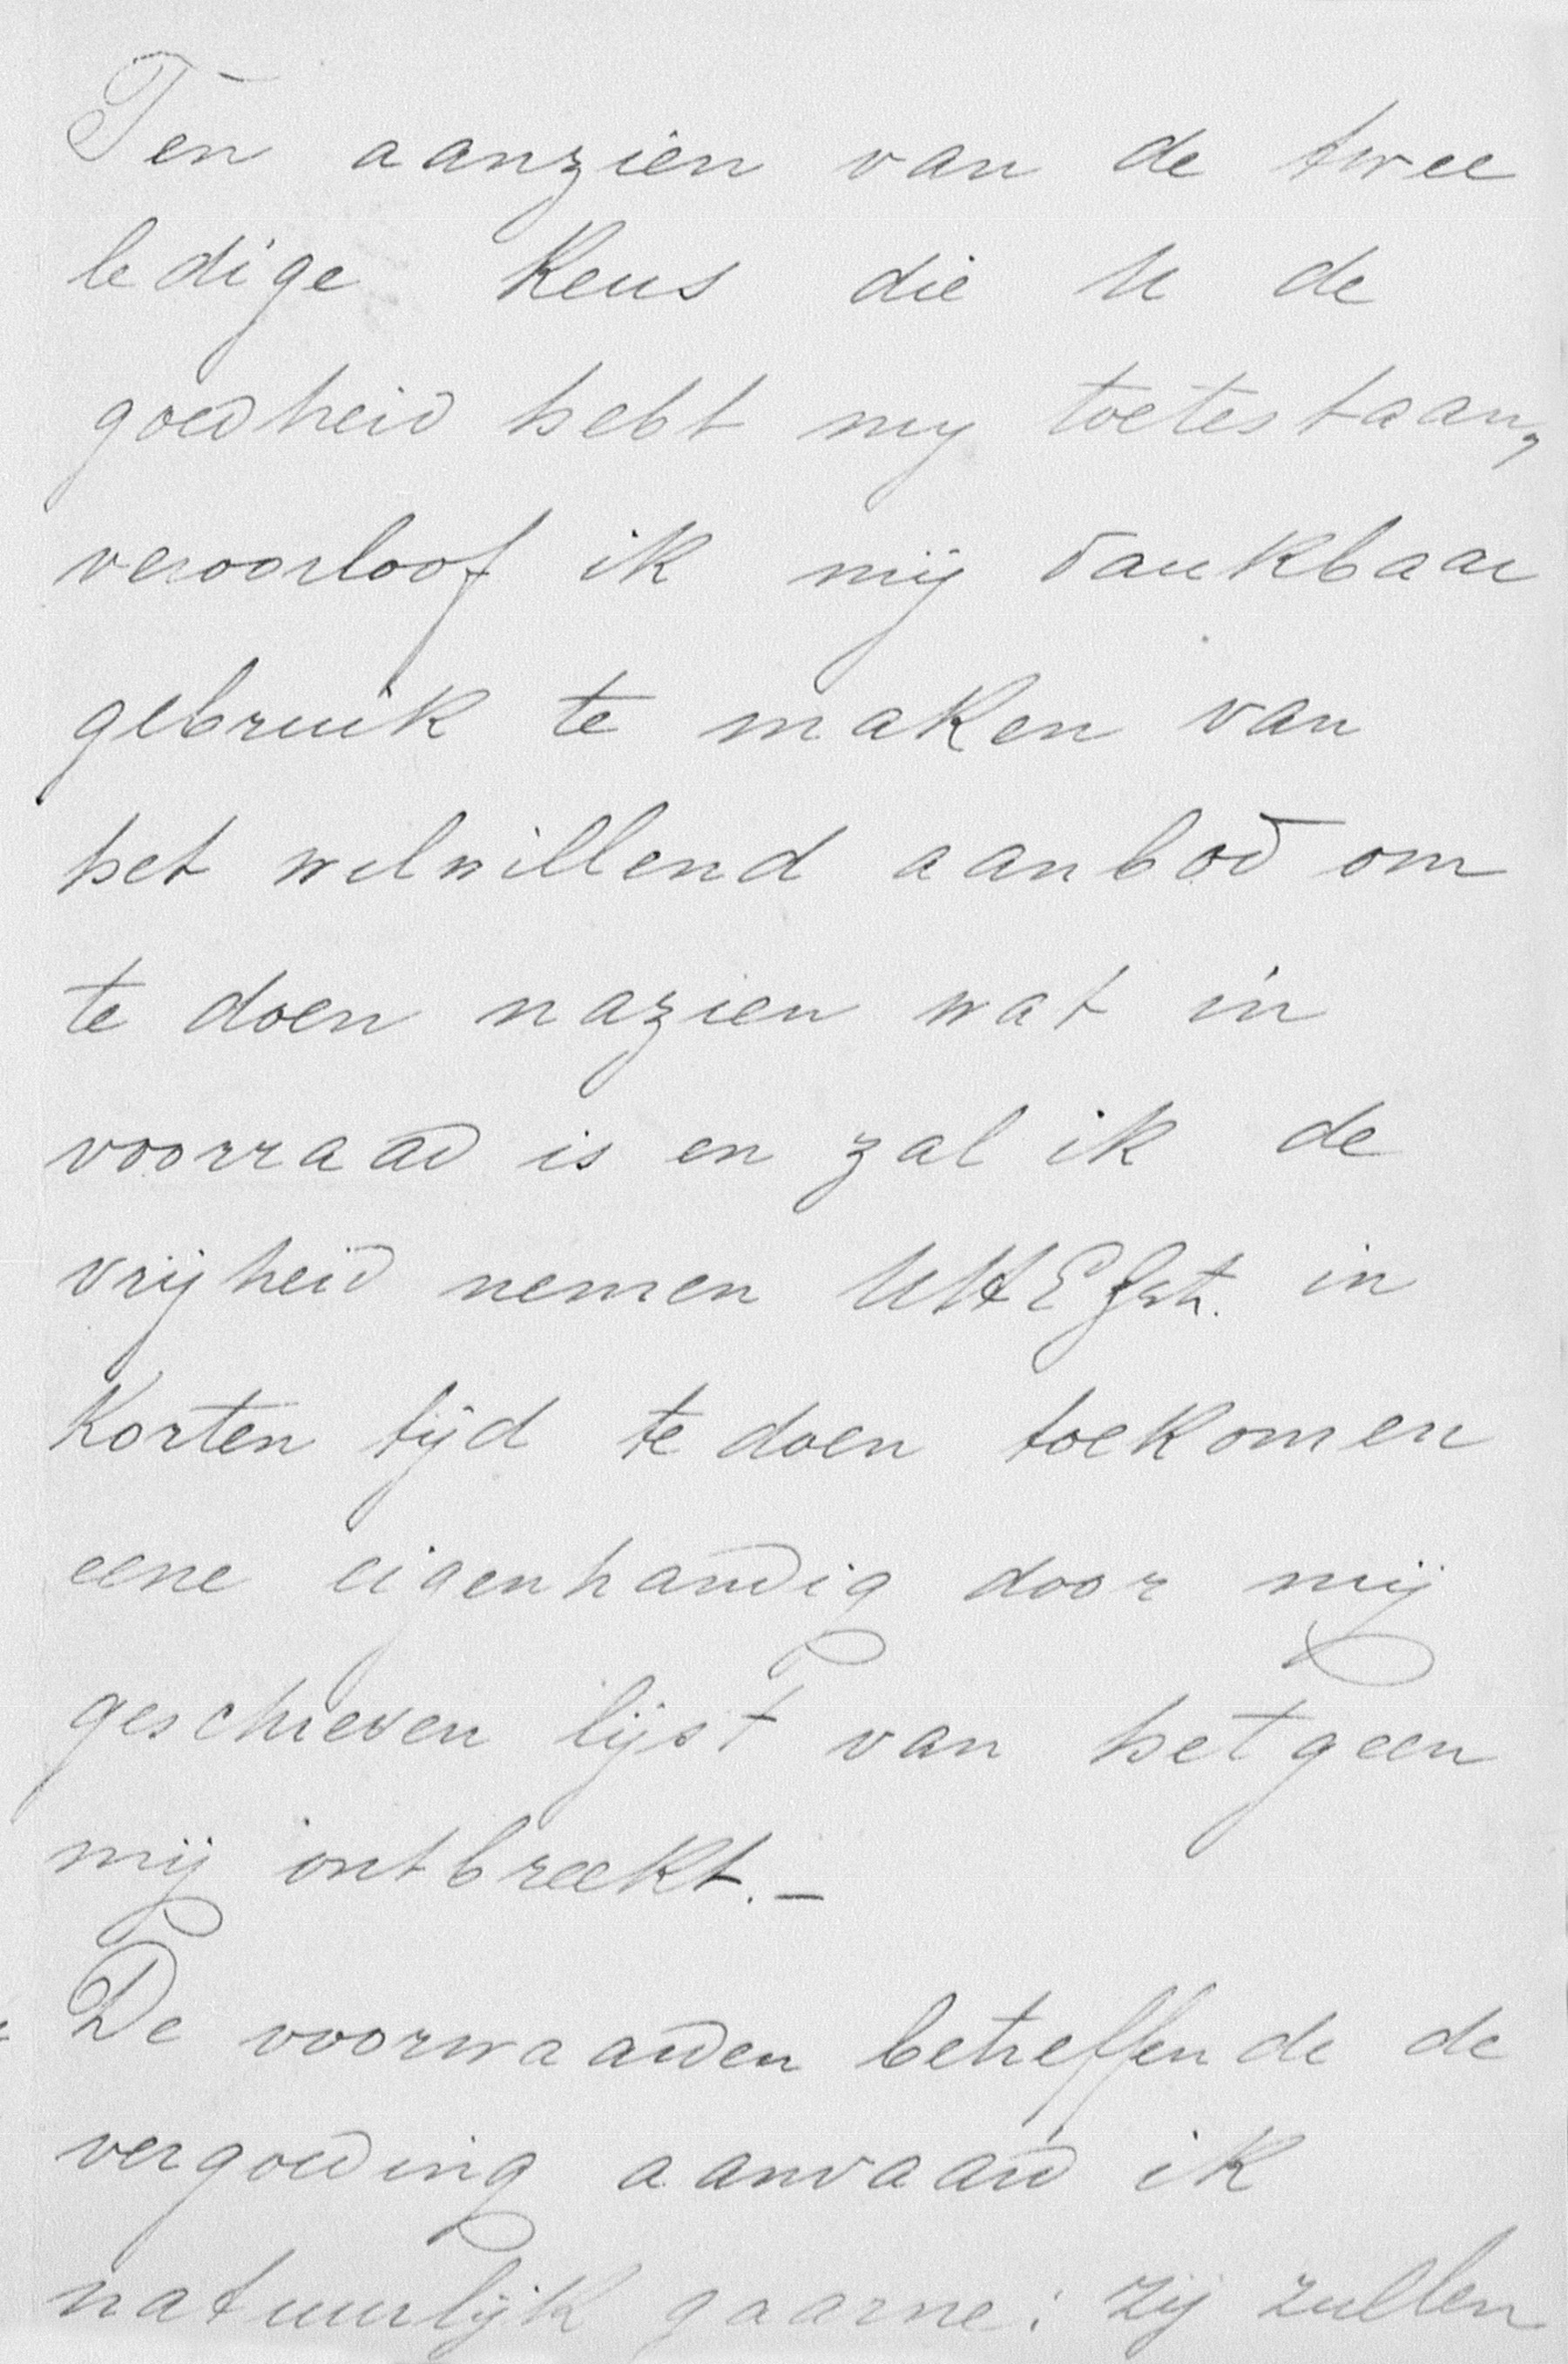 Ten aanzien van de twee
ledige keus die U de
goedheid hebt my toetestaan,
veroorloof ik mij dankbaar
gebruik te maken van
het welwillend aanbod om
te doen nazien wat in
voorraad is en zal ik de
vrijheid nemen UHEGest. in
korten tijd te doen toekomen
eene eigenhandig door mij
geschreven lijst van hetgeen
mij ontbreekt. —
De voorwaarden betreffende de
vergoeding aanvaard ik
natuurlijk gaarne: zij zullen